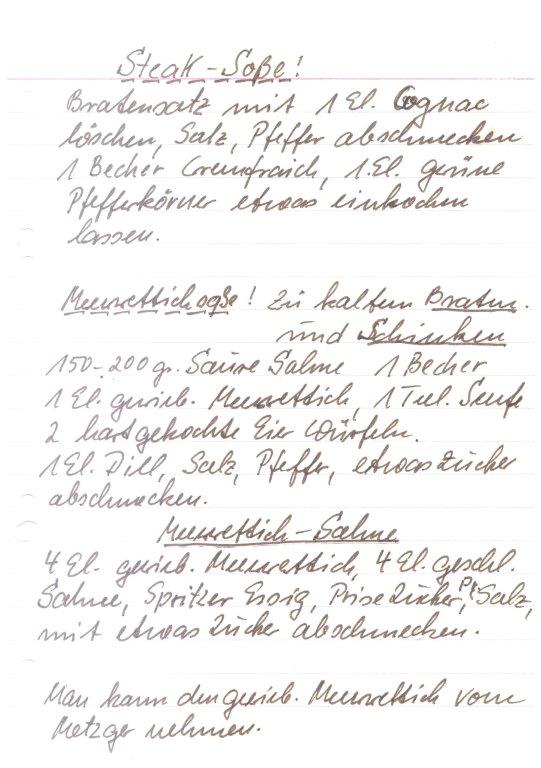 Steak-Soße!
Bratensatz mit 1 El. Cognac
löschen, Salz, Pfeffer abschmecken
1 Becher Cremfraich, 1 El. grüne
Pfefferkörner etwas einkochen
lassen.
Meerrettichsoße! Zu kaltem Braten.
und Schinken
150-200 gr. Saure Sahne 1 Becher
1 El. gerieb. Meerrettich, 1 Teel. Senf
2 hartgekochte Eier würfeln.
1 El. Dill, Salz, Pfeffer, etwas Zucker
abschmecken.
Meerrettich-Sahne
4 El. gerieb. Meerrettich, 4 El. geschl.
Sahne, Spritzer Essig, Prise Zucker, Pf. Salz,
mit etwas Zucker abschmecken.
Man kann den gerieb. Meerrettich vom
Metzger nehmen.